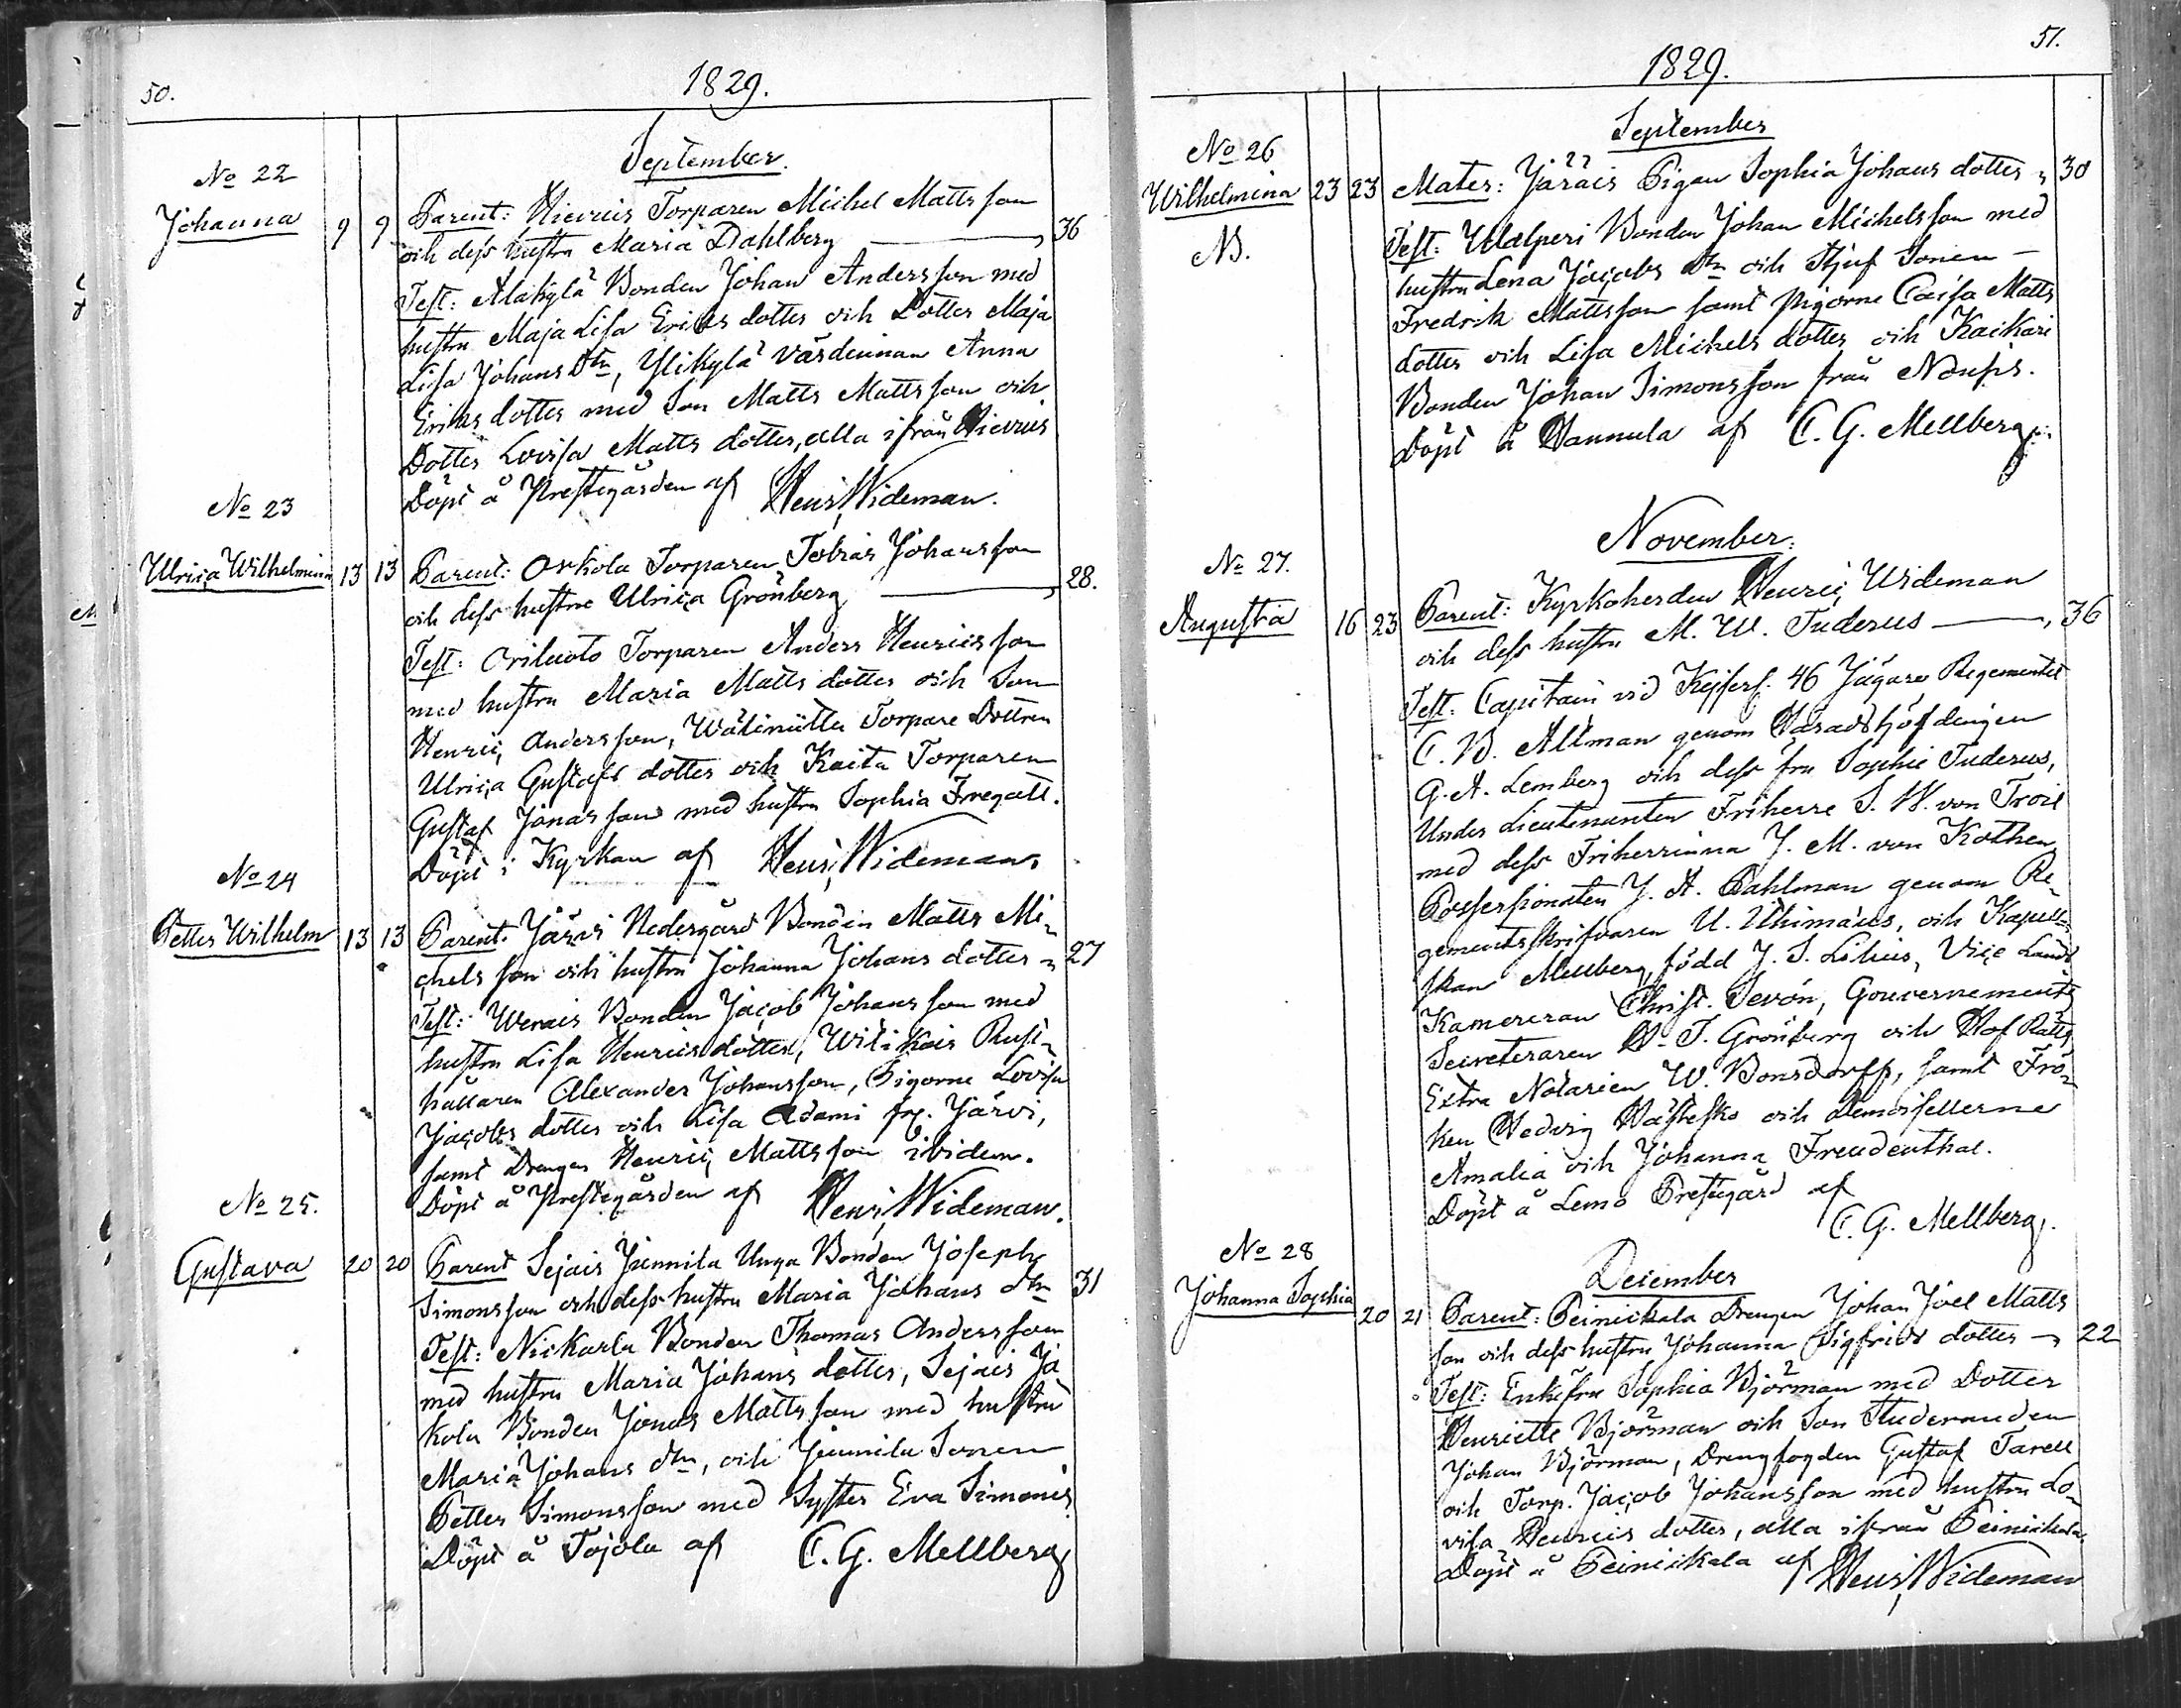 50.
1829.
September.
No 22
Johanna 9 9 Parent: Hierois Torparen Michel Matts son
och dess hustru Maria Dahlberg — 36
Test: Alakylä Bonden Johan Andersson med
hustru Maja Lisa Erics dotter och Dotter Maja
Lisa Johans Dtr, Ylikylä Värdinnan Anna
Erics dotter med Son Matts Mattsson och
Dotter Lovisa Matts dotter, alla ifrån
Döpt å Prestegården af Henr, Wideman.
No 23
Ulrica Wilhelmina 13 13 Parent: Orkola Torparen Tobias Johansson
och dess hustru Ulrica Grönberg — 28.
Test: Oriluoto Torparen Anders Henricsson
med hustru Maria Matts dotter och Son
Henric, Andersson, Torpare Dottren
Ulrica Gustafs dotter och Kaita Torparen
Gustaf Jonasson med hustru Sophia Fregatt.
Döpt i Kyrkan af Henr, Wideman,
No 24
Petter Wilhelm 13 13 Parent. Järvis Nedergård Bonden Matts Mi-
chels son och hustru Johanna Johans dotter 27
Test: Werais Bonden Jacob Johansson med
hustru Lisa Henrics dotter, Wilikais Rust-
hållaren Alexander Johansson, Pigorne Lovisa
Jacobs dotter och Lisa Adami fr. Järvi,
samt Drengen Henric, Mattsson ibidem.
Döpt å Prestegården af Henr, Wideman.
No 25.
Gustava 20 20 Parent Sejais Junnila Unga Bonden Joseph
Simonsson och dess hustru Maria Johans dtr 31
Test: Nickarla Bonden Thomas Andersson
med hustru Maria Johans dotter, Sejais Ja
kola Bonden Jonas Mattsson med hustru
Maria Johans dtr, och Junnila Sonen
Petter Simonsson med Syster Eva Simonis.
Döpt å Tojola af C. G. Mellberg
51.
1829.
September
No 26
Wilhelmina 23 23 Mater: Järäis Pigan Sophia Johans dotter 30
NB.
Test: Bonden Johan Michelsson med
hustru Lena Jacobs dtr och Stjuf Sonen
Fredrik Mattsson samt Pigorne Caisa Matts
dotter och Lisa Michels dotter och Kaikari
Bonden Johan Simonsson från Nousis.
Döpt å Hannula af C. G. Mellberg.
November.
No 27.
Augusta 16 23 Parent: Kyrkoherden Henric, Wideman
och dess hustru M. W. Tuderus — 36
Test. Capitain vid Kejserl. 46 Jägare Regementet
C. B. Altman genom Häradshöfdingen
G. A. Lemberg och dess fru Sophie Tuderus,
Under Lieutenanten Friherre S. W. von Troil
med dess Friherrinna J. M. von Kothen,
Possessionaten J. A. Pahlman genom Re-
gements skrifvaren U. Ithimæus, och Kapell-
skan Mellberg, född J. S. Lilius, Vice Lands
Kamereran Christ. Sevón, Gouvernements
Secreteraren D. T. Grönberg och Hof Rätts
Extra Notarien W. Bonsdorff, samt Frö-
ken Hedvig Hästesko och Demoisellerne
Amalia och Johanna Freudenthal.
Döpt å Lemo Prestegård af
C. G. Mellberg.
December
No 28
Johanna Sophia 20 21 Parent: Peinickala Drengen Johan Joel Matts
son och dess hustru Johanna Sigfrids dotter 22
Test: Enkefru Sophia Björman med Dotter
Henriette Björman och Son Studeranden
Johan Björman, Drengfogden Gustaf Tarell
och Torp. Jacob Johansson med hustru Lo-
visa Henrics dotter, alla ifrån Peinickala.
Döpt å Peinickala af Henr, Wideman